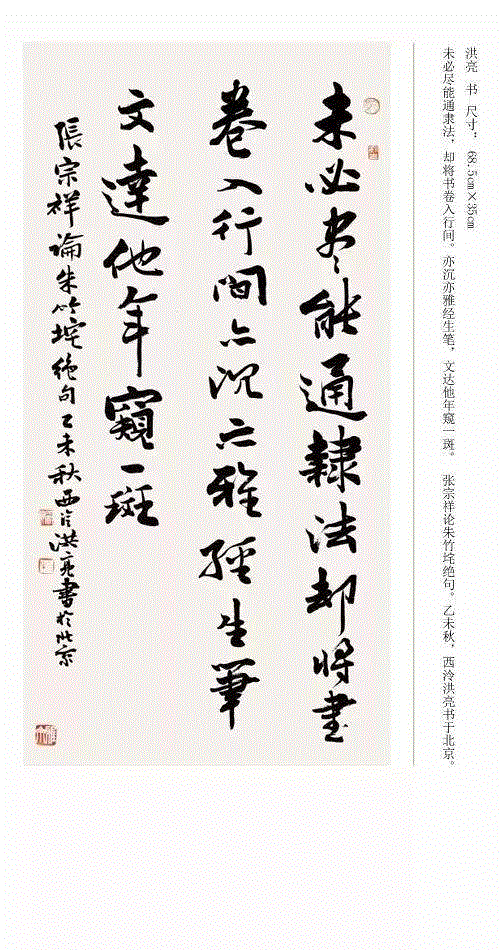 洪亮 书 尺寸: 68.5cm×35cm
未必尽能通隶法，却将书卷入行间。亦沉亦雅经生笔，文达他年窥一斑。 张宗祥论朱竹垞绝句。乙未秋，西泠洪亮书于北京。
未必尽能通隸法却将書
卷入行間亦沉亦雅經生筆
文達他年窺一斑
張宗祥論朱竹垞絕句乙未秋西泠洪亮書於北京